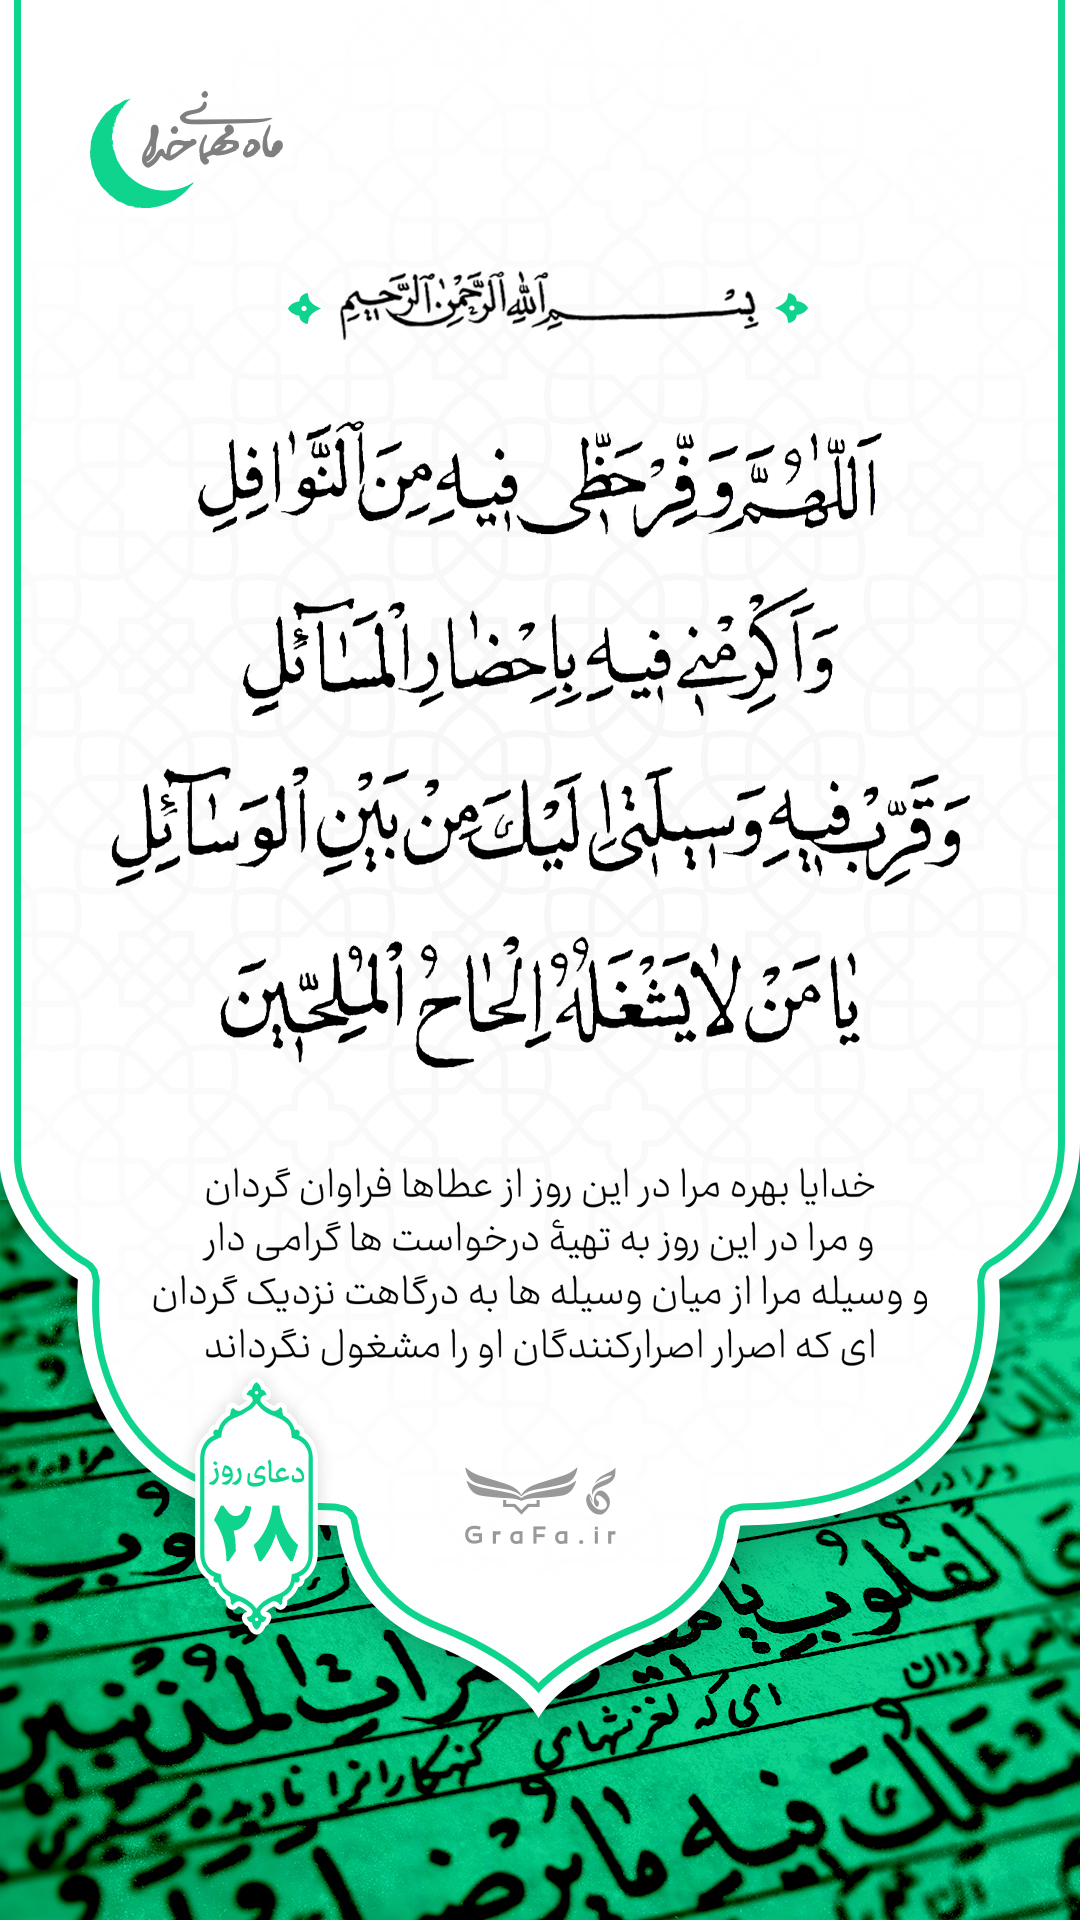 ماه مهمانی خدا
بِسْمِ ٱللّٰهِ ٱلرَّحْمٰنِ ٱلرَّحِيمِ
اَللّٰهُمَّ وَفِّرْ حَظّٖى فٖيهِ مِنَ ٱلنَّوٰافِلِ
وَاَكْرِمْنٖى فٖيهِ بِاِحْضٰارِ ٱلْمَسٰآئِلِ
وَقَرِّبْ فٖيهِ وَسٖيلَتٖى اِلَيْكَ مِنْ بَيْنِ ٱلْوَسٰآئِلِ
يٰا مَنْ لٰا يَشْغَلُهُ اِلْحٰاحُ ٱلْمُلِحّٖينَ
خدایا بهره مرا در این روز از عطاها فراوان گردان
و مرا در این روز به تهیهٔ درخواست ها گرامی دار
و وسیله مرا از میان وسیله ها به درگاهت نزدیک گردان
ای که اصرار اصرارکنندگان او را مشغول نگرداند
دعای روز
۲۸
GraFa.ir
ٱلْقُلُوبِ يٰا
ای که لغزشهای
گنهکارانرا نادیده
فٖيهِ مٰا يُرْضٖي